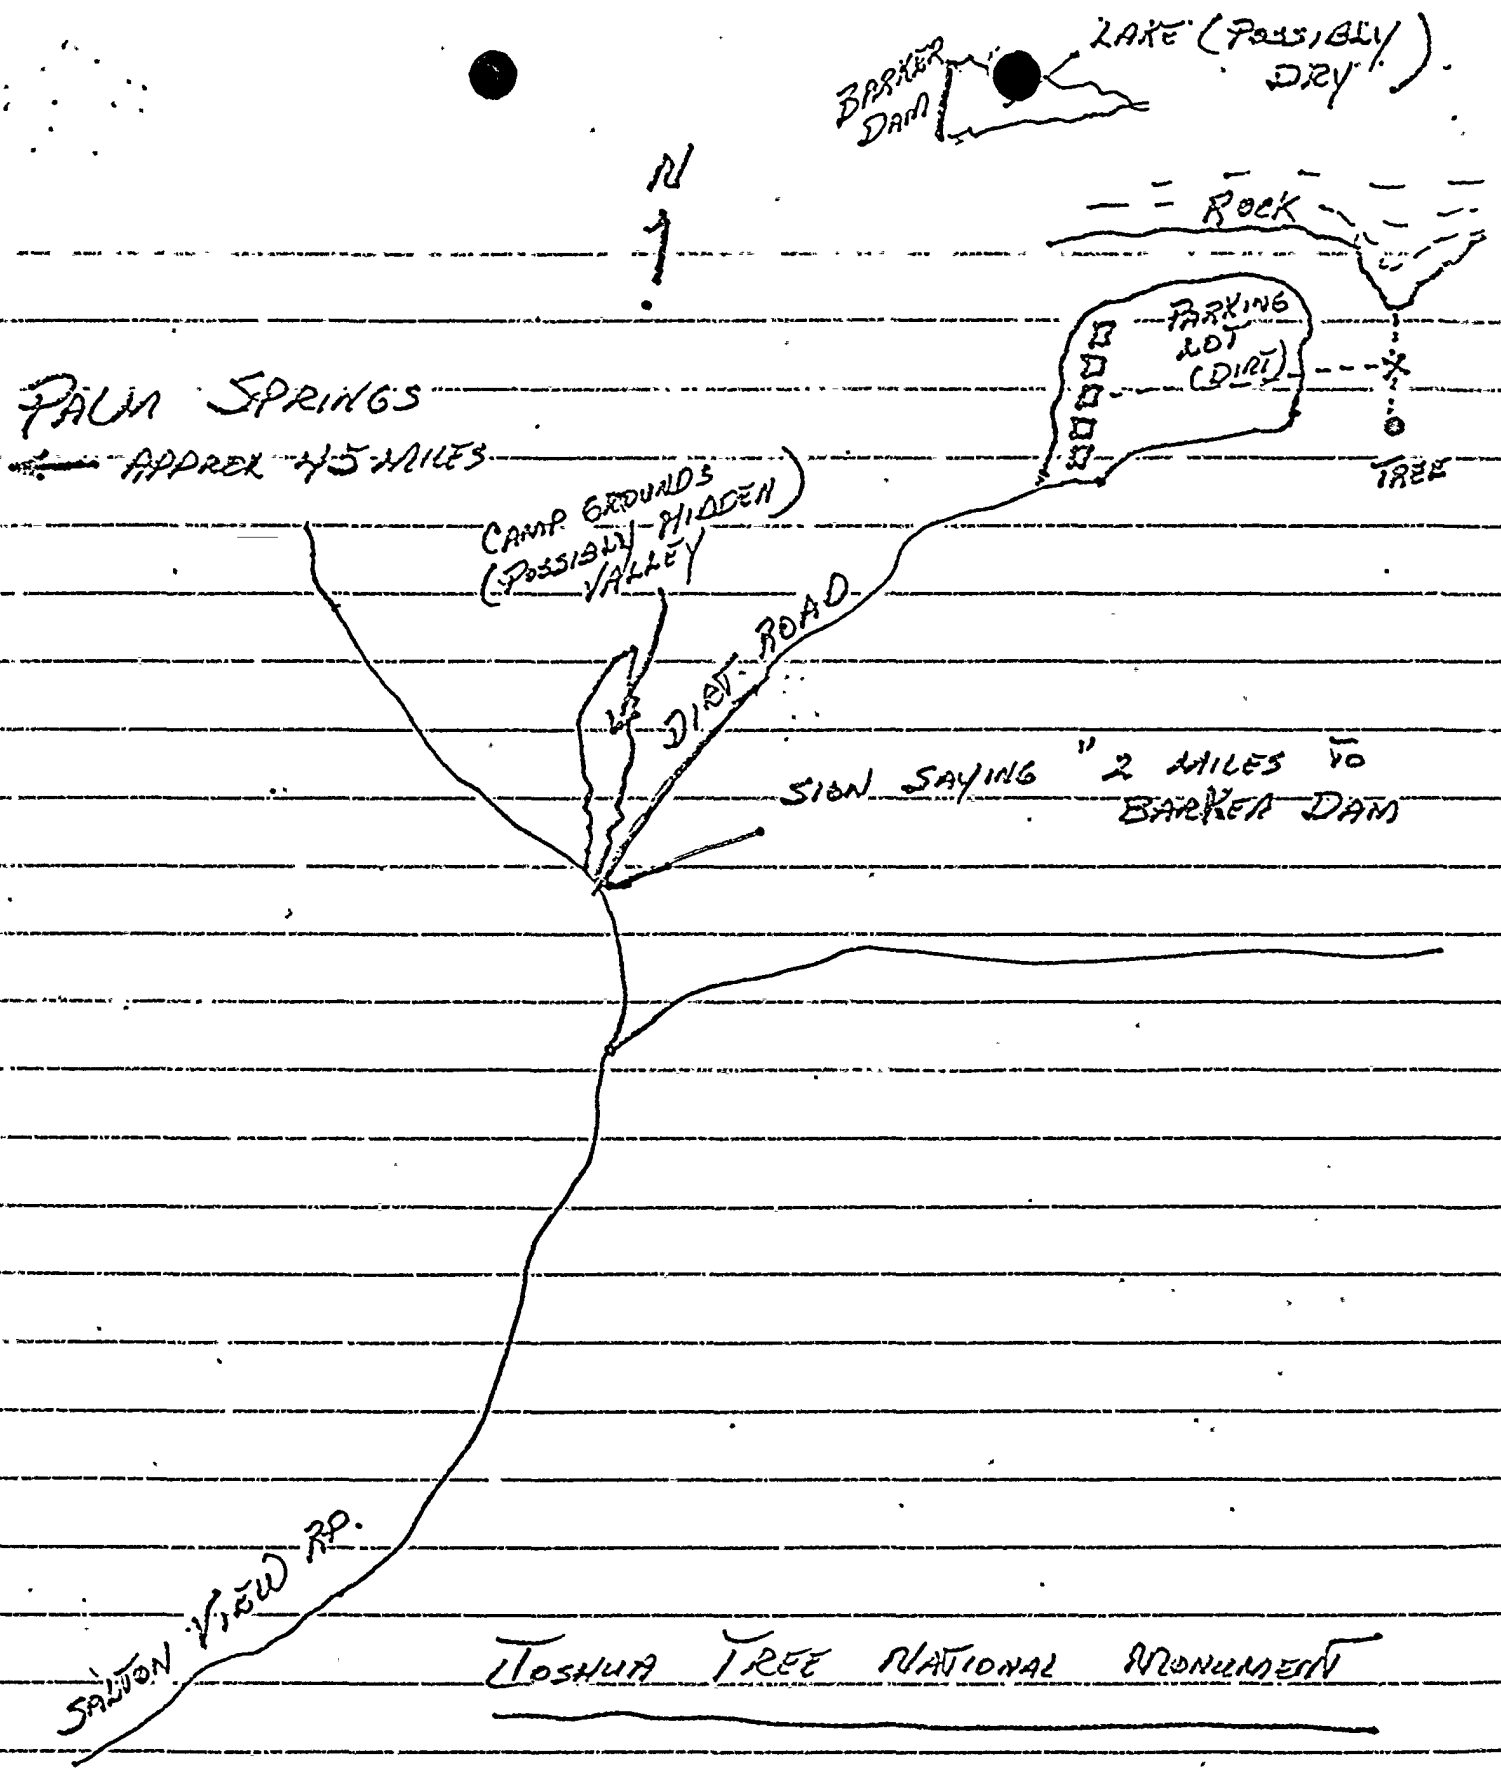 LAKE (POSSIBLY
DRY)
BARKER
DAM
N
ROCK
PARKING
LOT
(DIRT)
PALM SPRINGS
APPROX 45 MILES
TREE
CAMP GROUNDS
(POSSIBLY HIDDEN
VALLEY)
DIRT ROAD
SIGN SAYING "2 MILES TO
BARKER DAM
SALTON VIEW RD.
JOSHUA TREE NATIONAL MONUMENT